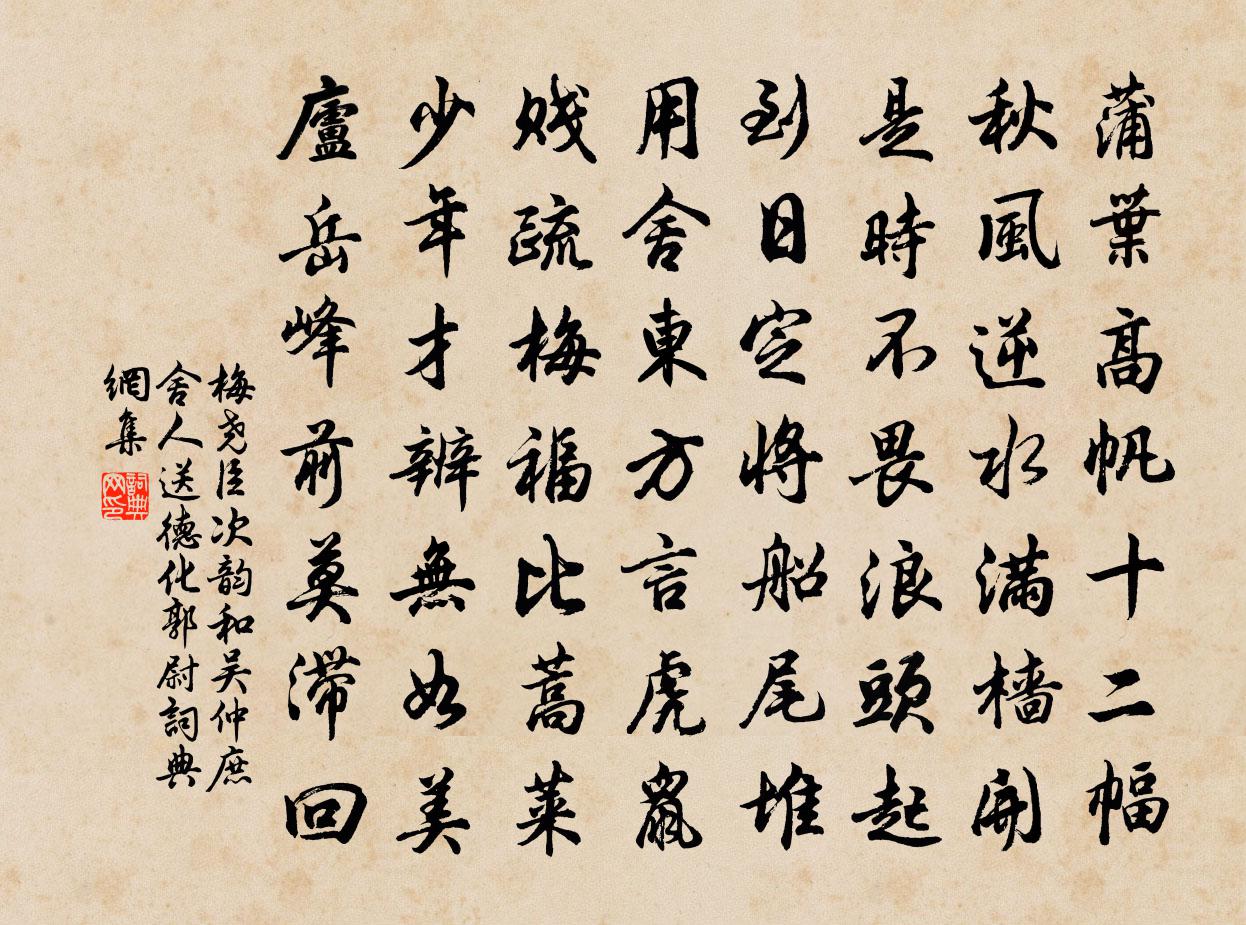 蒲葉高帆十二幅
秋風逆水滿檣開
是時不畏浪頭起
到日定將船尾堆
用舍東方言虎鼠
賤疏梅福比蒿萊
少年才辨無如美
廬岳峰前莫滯回
梅尧臣次韵和吴仲庶
舍人送德化郭尉詞典
網集
詞典網印